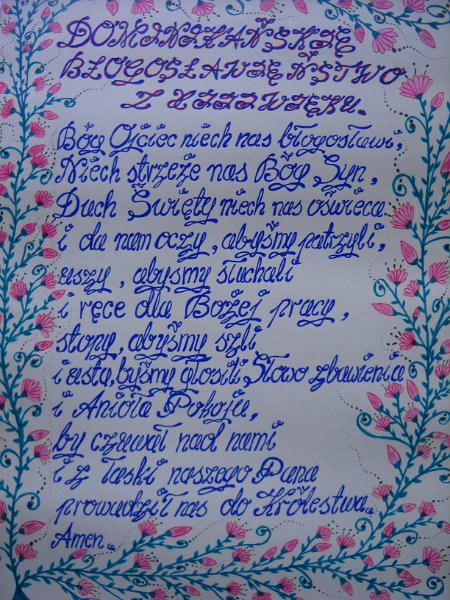 DOMINIKAŃSKIE
BŁOGOSŁAWIEŃSTWO
Z XIII WIEKU.
Bóg Ojciec niech nas błogosławi,
Niech strzeże nas Bóg Syn,
Duch Święty niech nas oświeca
i da nam oczy, abyśmy patrzyli,
uszy, abyśmy słuchali
i ręce dla Bożej pracy,
stopy, abyśmy szli
i usta, byśmy głosili Słowo zbawienia
i Anioła Pokoju,
by czuwał nad nami
i z łaski naszego Pana
prowadził nas do Królestwa.
Amen.